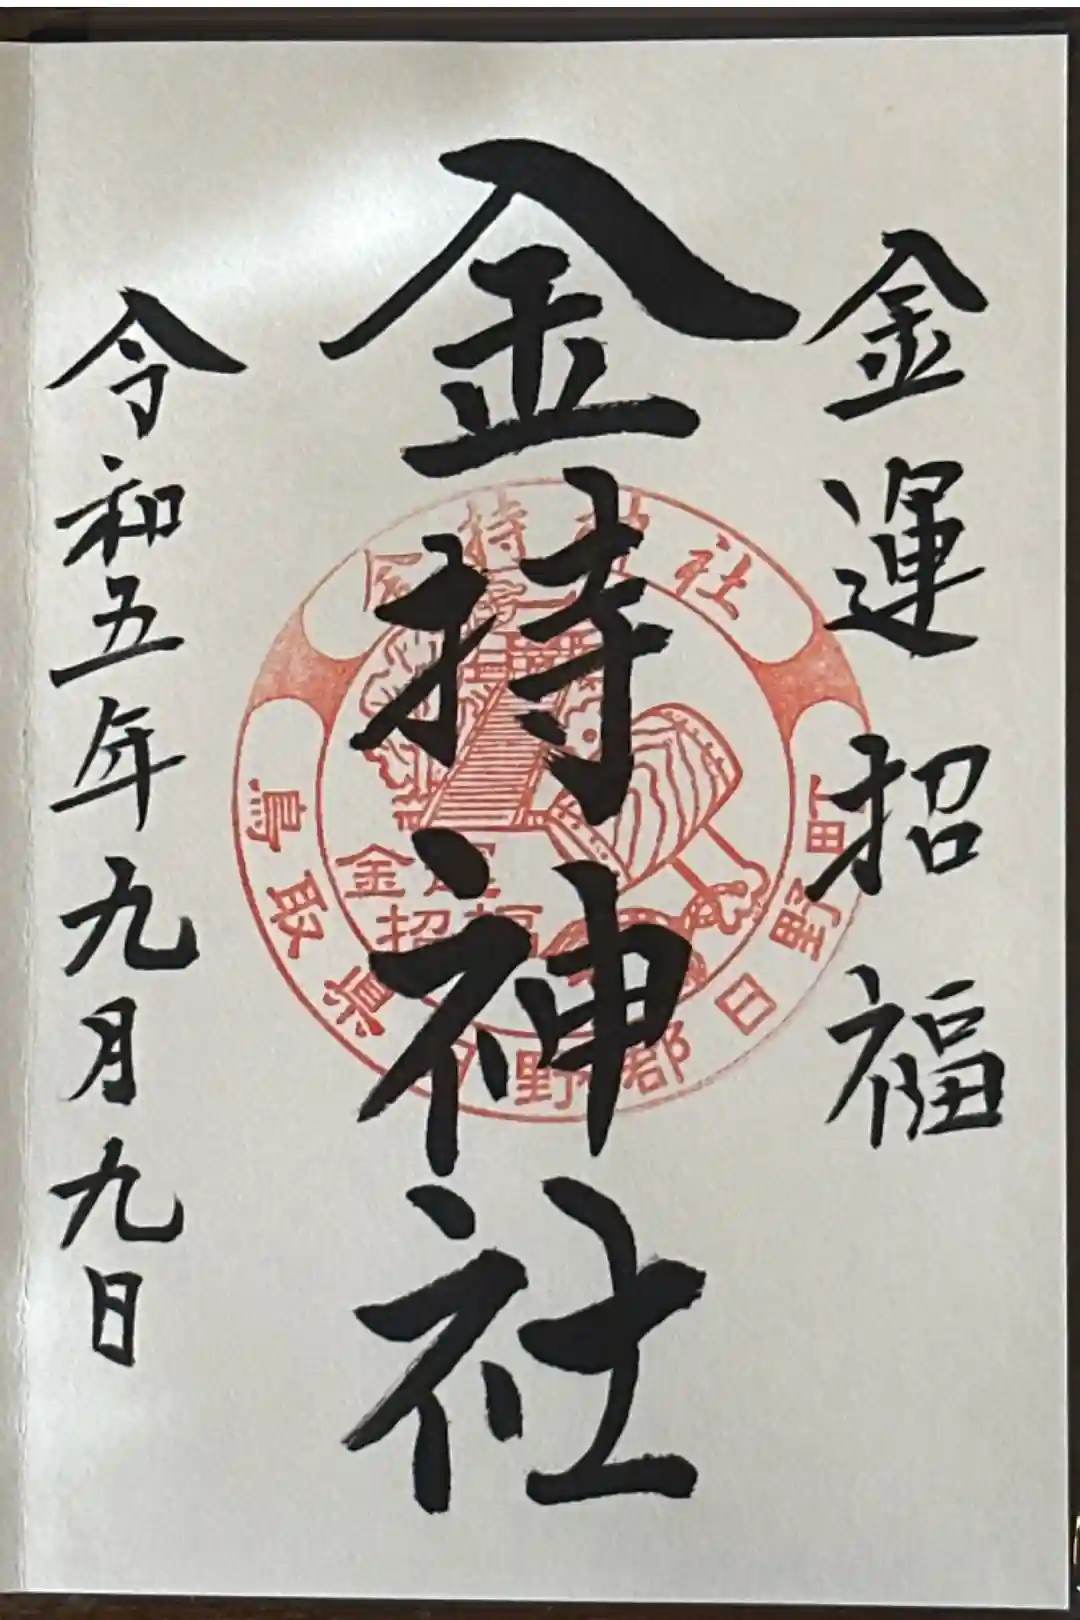 金運招福
金持神社
令和五年九月九日
金持神社
鳥取県日野郡日野町
金運
招福